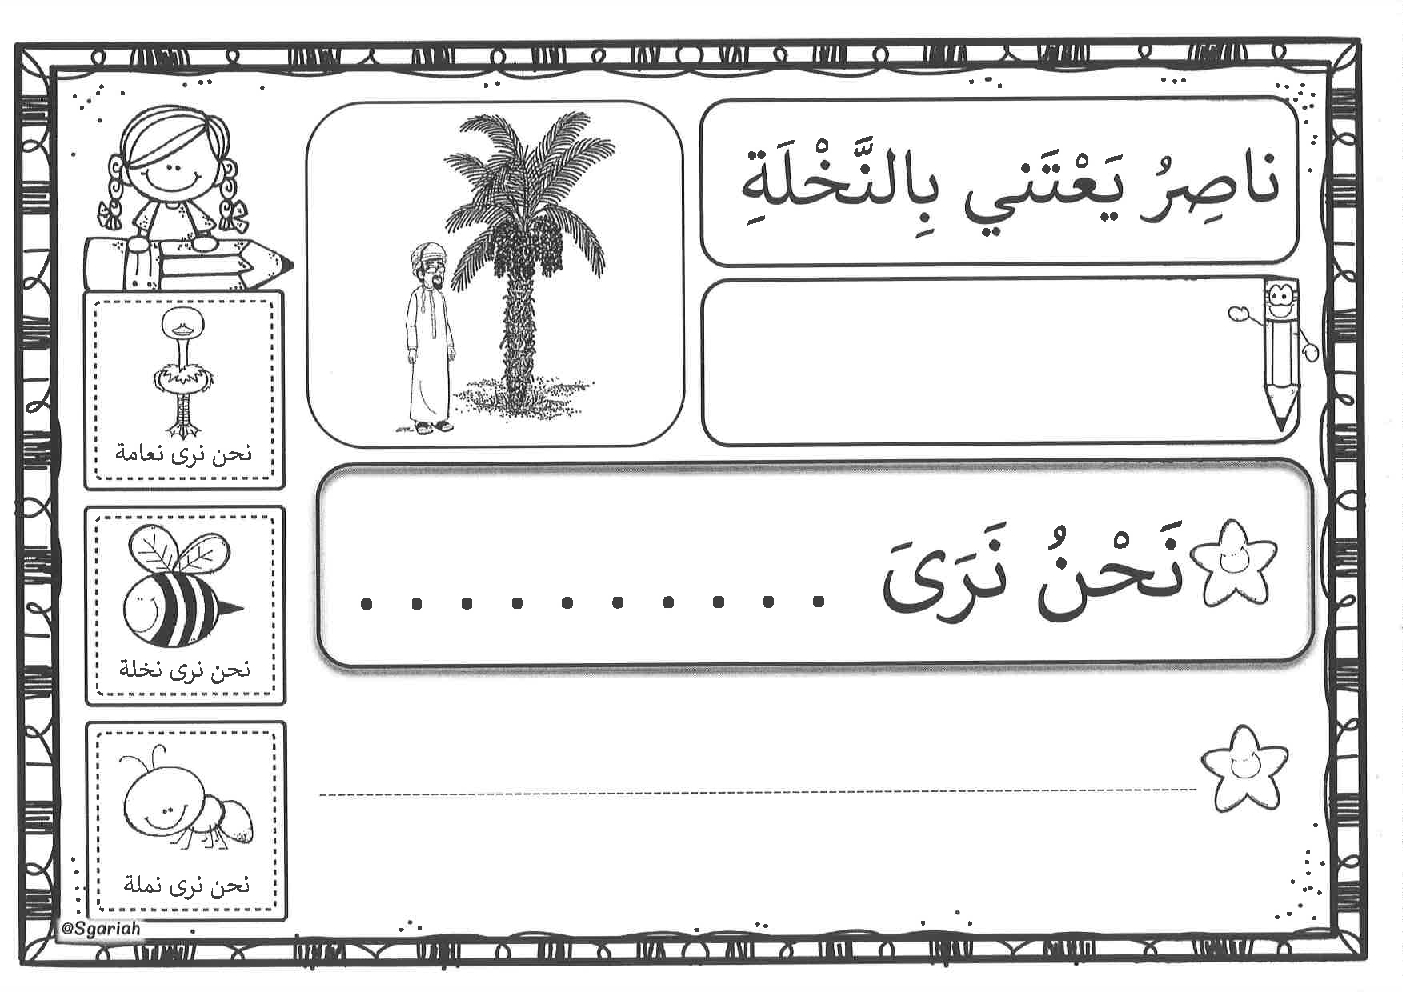 ناصِرُ يَعْتَني بِالنَّخْلَةِ
نَحْنُ نَرَىَ . . . . . . . . . .
نحن نرى نعامة
نحن نرى نخلة
نحن نرى نملة
@Sgariah